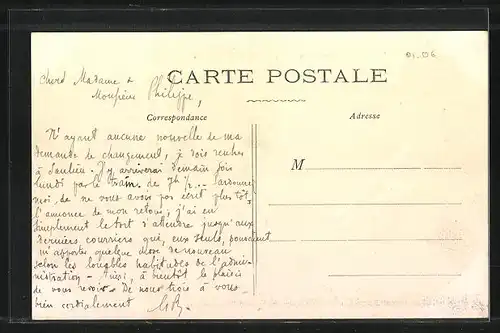 01-06
Chers Madame &
Monsieur Philippe,
CARTE POSTALE
Correspondance
Adresse
M
N'ayant aucune nouvelle de ma
demande de changement, je dois rentrer
à Saulieu. J'y arriverai demain soir
lundi par le train de 7h 1/2 -- Pardonnez
moi, de ne vous avoir pas écrit plus tôt,
l'annonce de mon retour; j'ai eu
simplement le tort d'attendre jusqu'aux
derniers courriers qui, eux seuls, pouvaient
m'apporter quelque chose de nouveau
selon les louables habitudes de l'admi-
nistration - Ainsi, à bientôt le plaisir
de vous revoir. De nous trois à vous
bien cordialement